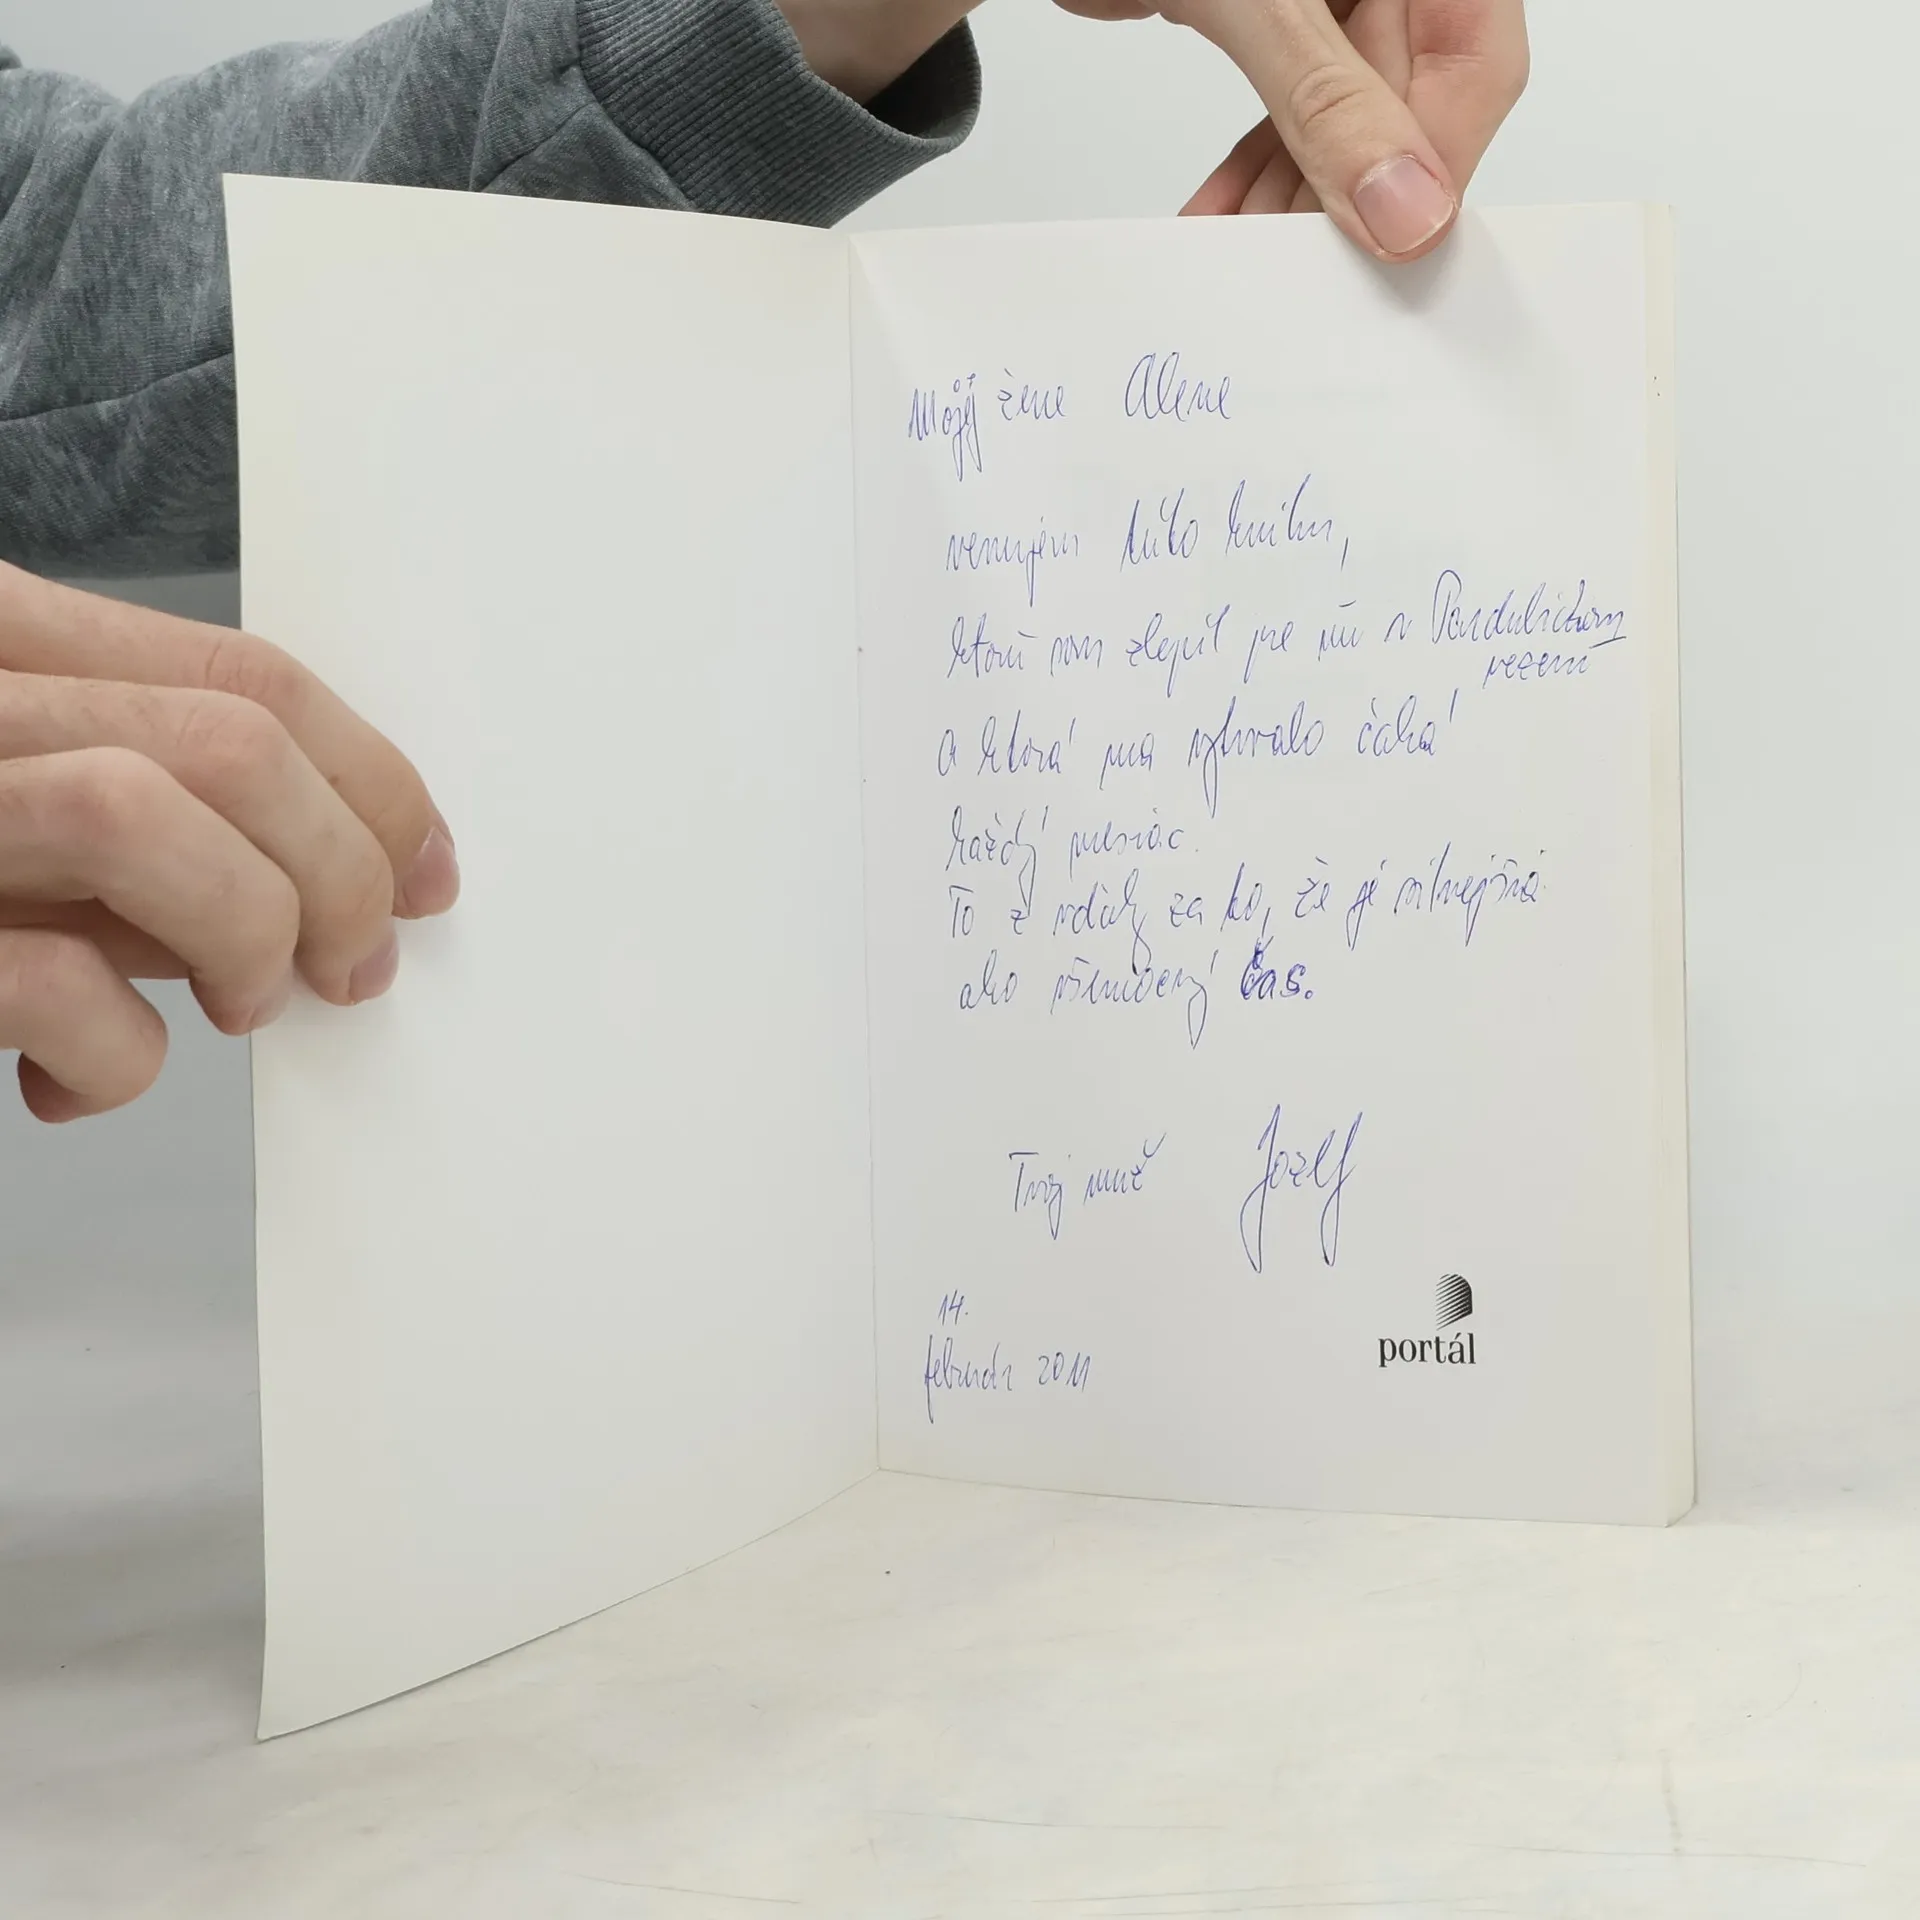 Mojej žene Alene
venujem túto knihu,
ktorú som zlepil pre ňu v Pardubickom
vezení
a ktorá ma vytrvalo čaká
každý mesiac.
To z vďaky za to, že je silnejšia
ako všemocný čas.
Tvoj muž Jozef
14.
február 2011
portál